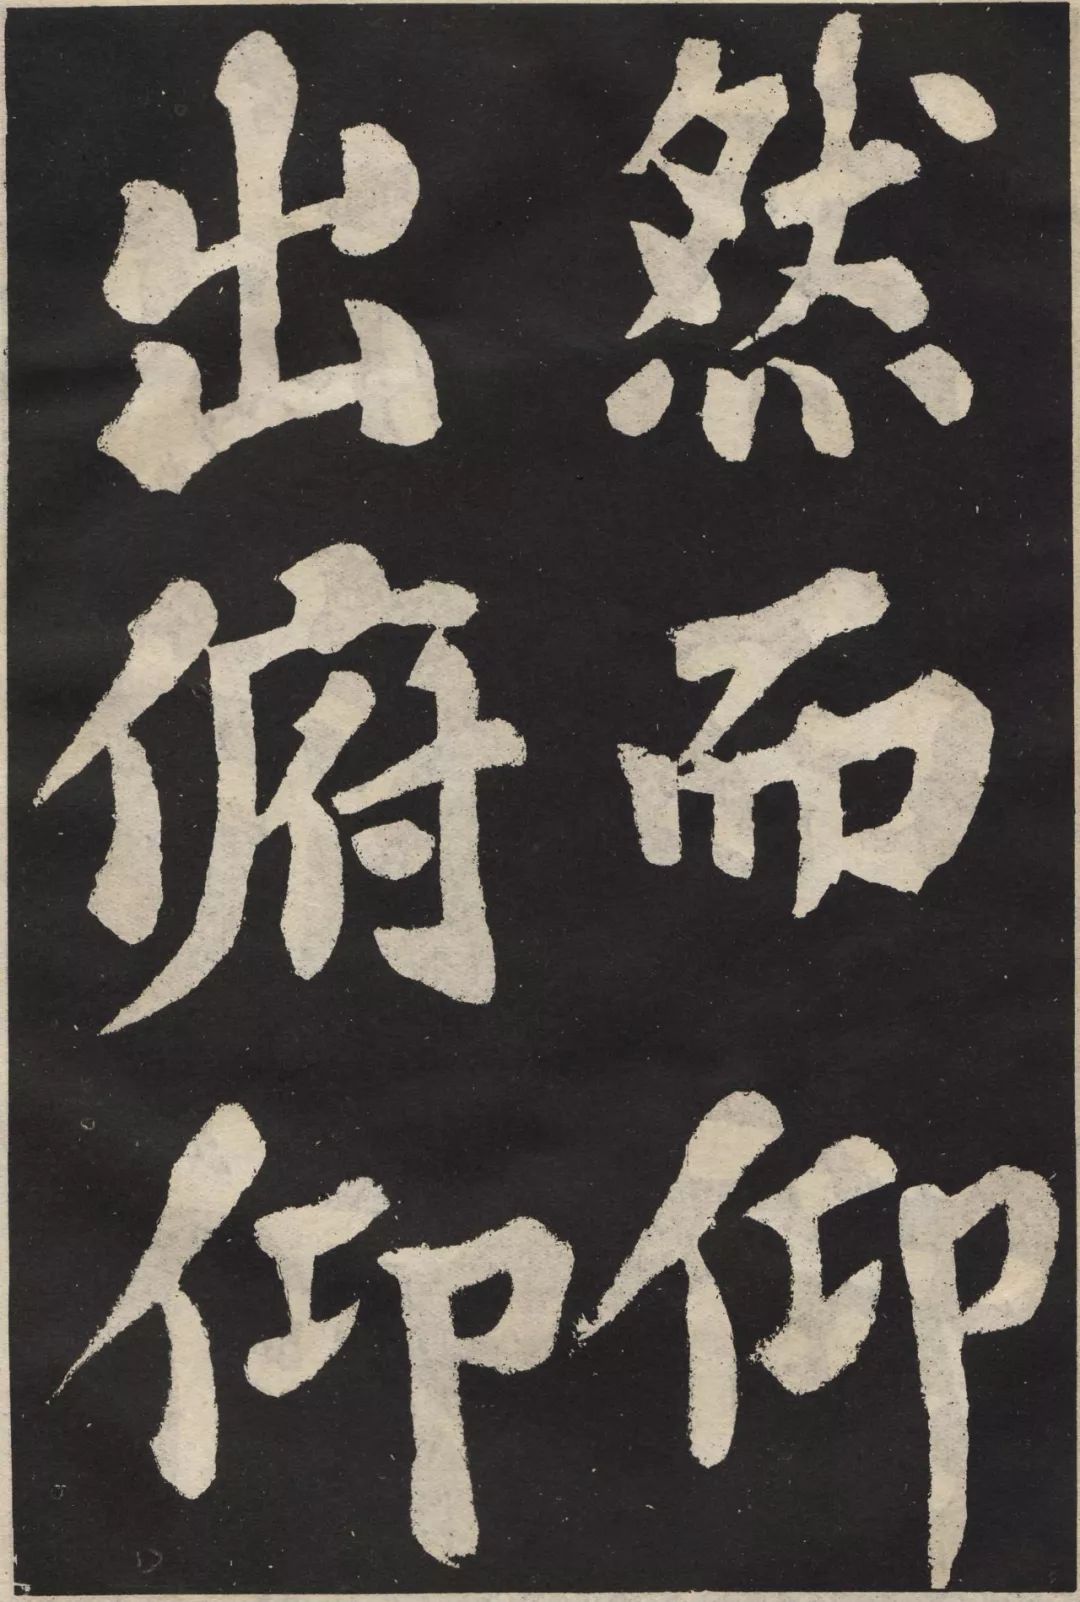 然而仰
出俯仰